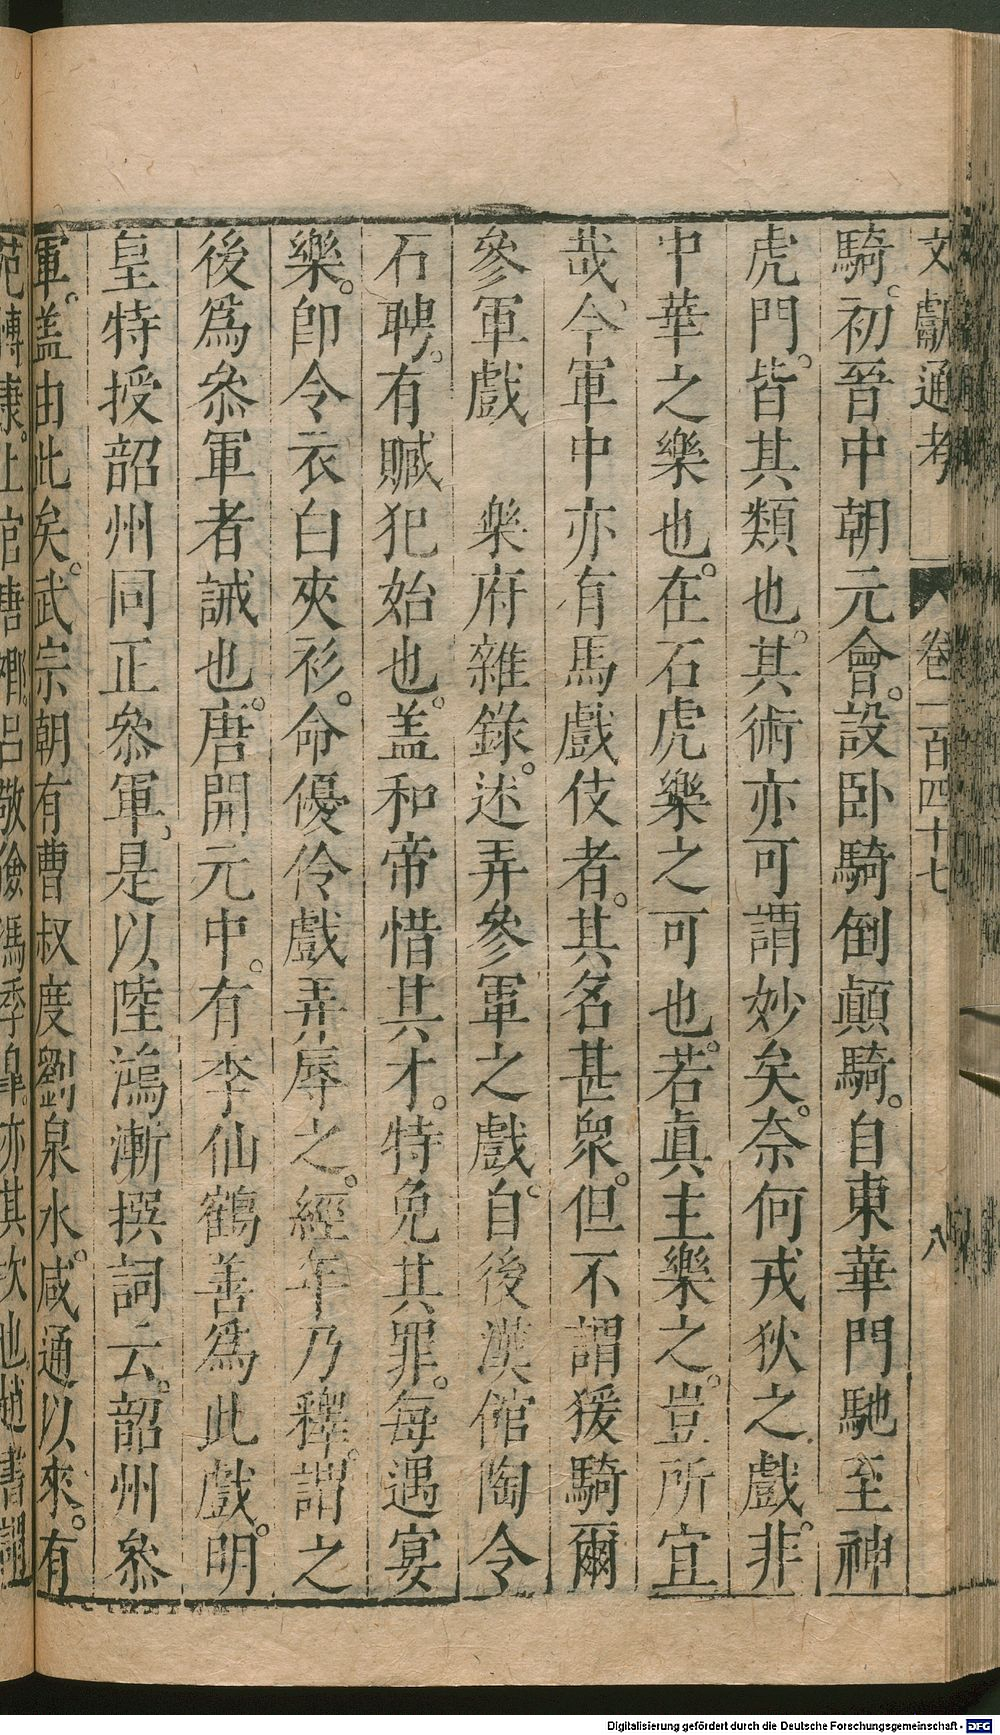 文獻通考 卷一百四十七 八
騎。初晉中朝元會。設卧騎倒顛騎。自東華門馳至神
虎門。皆其類也。其術亦可謂妙矣。奈何戎狄之戲。非
中華之樂也。在石虎樂之可也。若眞主樂之。豈所宜
哉。今軍中亦有馬戲伎者。其名甚衆。但不謂猨騎爾
參軍戲 樂府雜錄。述弄參軍之戲。自後漢館陶令
石聃。有贓犯始也。盖和帝惜其才。特免其罪。每遇宴
樂。卽令衣白夾衫。命優伶戲弄辱之。經年乃釋。謂之
後爲叅軍者誡也。唐開元中。有李仙鶴善爲此戲。明
皇特授韶州同正叅軍。是以陸鴻漸撰詞云。韶州叅
軍。盖由此矣。武宗朝有曹叔度劉泉水。咸通以來。有
范傳康。上官唐卿。呂敬儉馮季臯。亦其次也。趙書謂
Digitalisierung gefördert durch die Deutsche Forschungsgemeinschaft - DFG